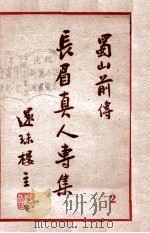 蜀山前傳
長眉真人專集
還珠樓主
2